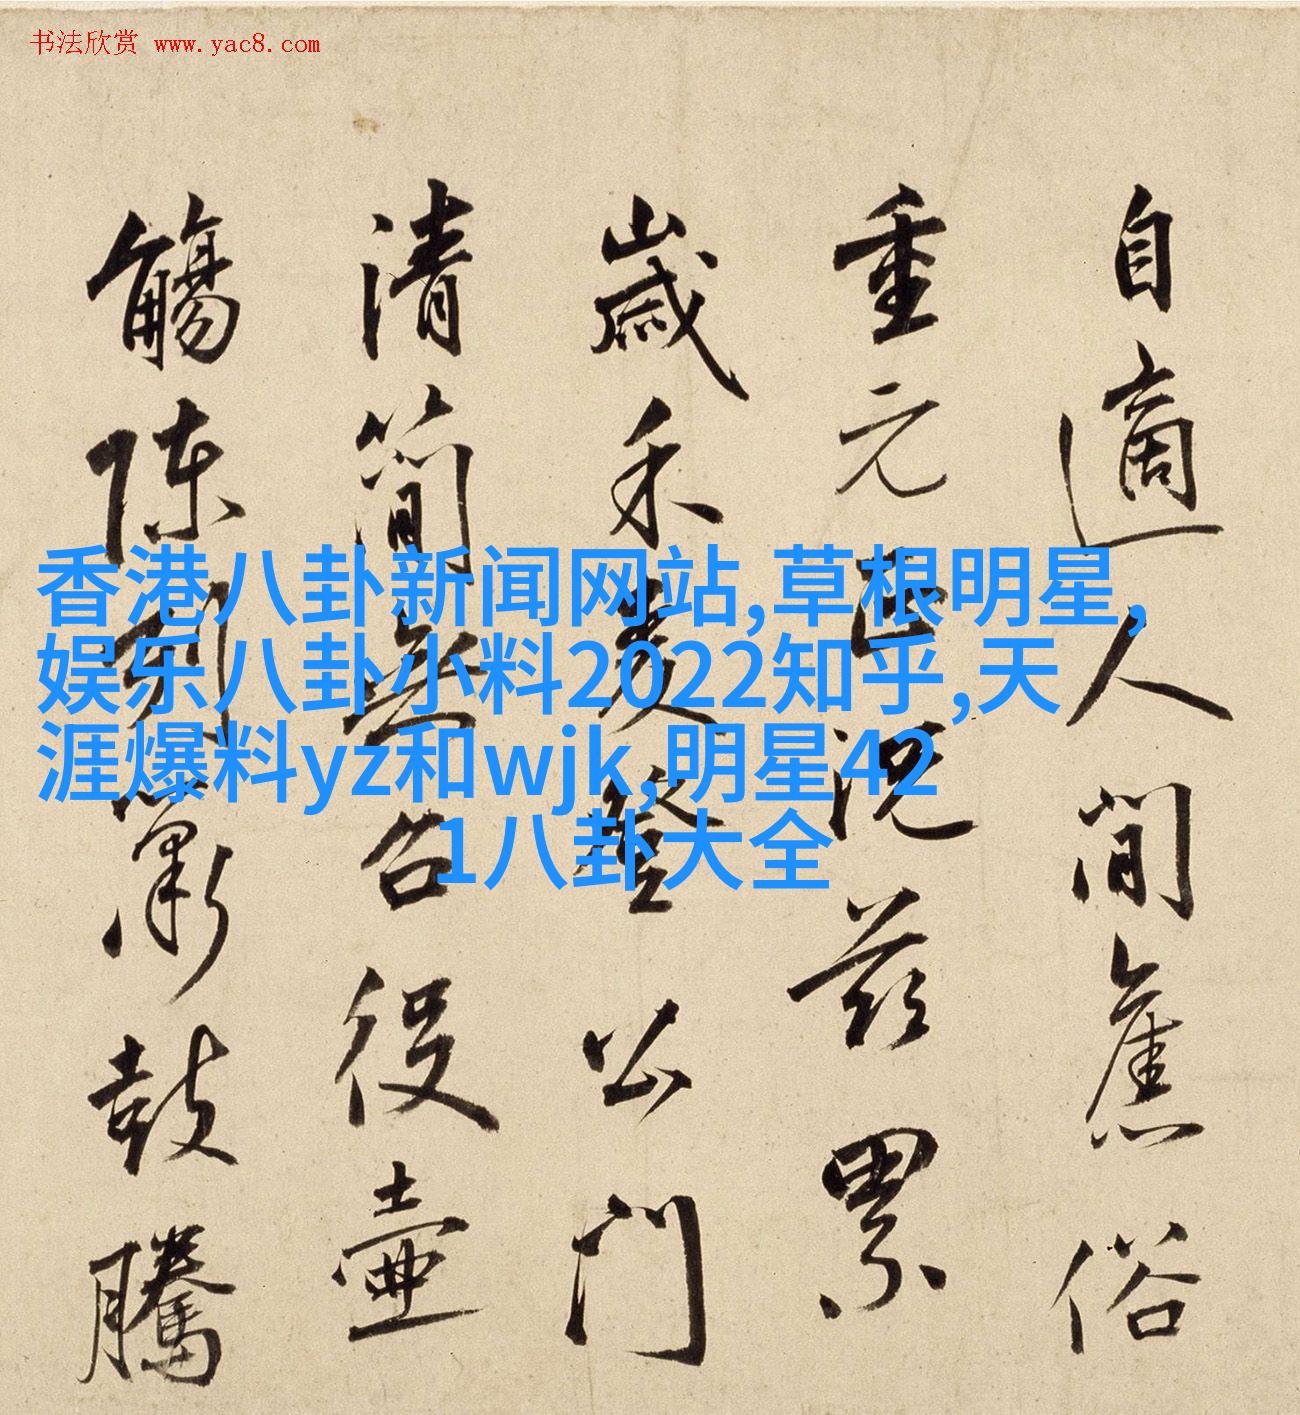 书法欣赏 www.yac8.com
自適人間舊俗
重元巳況茲累
歲禾麥登公門
清簡無召役壺
觴陳列簫鼓騰
香港八卦新闻网站,草根明星,
娱乐八卦小料2022知乎,天
涯爆料yz和wjk,明星42
1八卦大全